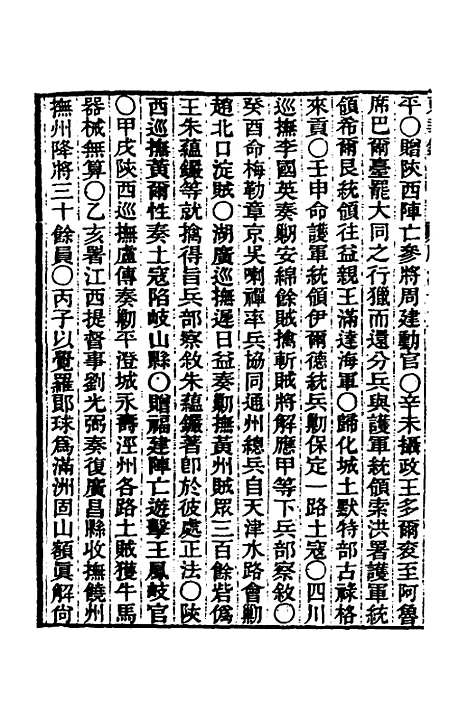 平○贈陝西陣亡參將周建勳官○辛未攝政王多爾袞至阿魯
席巴爾臺罷大同之行獵而還分兵與護軍統領索洪署護軍統
領希爾艮統領往益親王滿達海軍○歸化城土默特部古祿格
來貢○壬申命護軍統領伊爾德統兵勦保定一路土寇○四川
巡撫李國英奏勦安綿餘賊擒斬賊將解應甲等下兵部察敘○
癸酉命梅勒章京吳喇禪率兵協同通州總兵自天津水路會勦
趙北口淀賊○湖廣巡撫遲日益奏勦撫黃州賊眾三百餘砦僞
王朱蘊鑼等就擒得旨兵部察敘朱蘊鑼著卽於彼處正法○陝
西巡撫黃爾性奏土寇陷岐山縣○贈福建陣亡遊擊王鳳岐官
○甲戌陝西巡撫盧傳奏勦平澄城永壽涇州各路土賊獲牛馬
器械無算○乙亥署江西提督事劉光弼奏復廣昌縣收撫饒州
撫州降將三十餘員○丙子以覺羅郎球爲滿洲固山額眞解尙